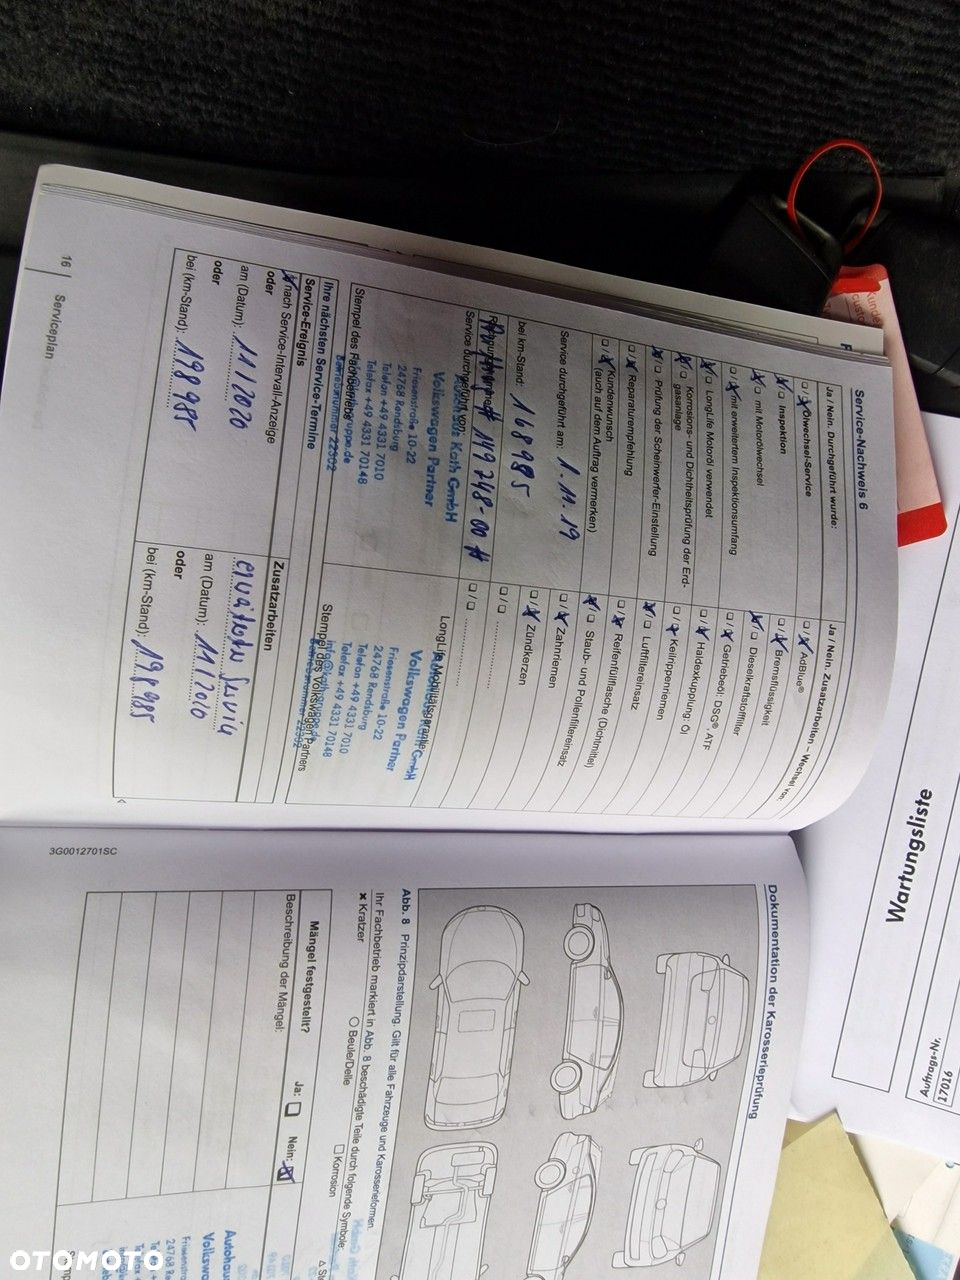 Service-Nachweis 6
Ja / Nein. Durchgeführt wurde:
Ölwechsel-Service
Inspektion
mit Motorölwechsel
mit erweitertem Inspektionsumfang
LongLife Motoröl verwendet
Korrosions- und Dichtheitsprüfung der Erd-
gasanlage
Prüfung der Scheinwerfer-Einstellung
Reparaturempfehlung
Kundenwunsch
(auch auf dem Auftrag vermerken)
Service durchgeführt am: 1.11.19
bei km-Stand: 168985
# 149248-00 #
Service durchgeführt von:
Autohaus Kath GmbH
Volkswagen Partner
Friesenstraße 10-22
24768 Rendsburg
Telefon +49 4331 7010
Telefax +49 4331 70148
Betriebsnummer 22302
Stempel des Fachbetriebs
Ja / Nein. Zusatzarbeiten – Wechsel von:
AdBlue®
Bremsflüssigkeit
Dieselkraftstofffilter
Getriebeöl: DSG®, ATF
Haldexkupplung: Öl
Keilrippenriemen
Luftfiltereinsatz
Reifenfüllflasche (Dichtmittel)
Staub- und Pollenfiltereinsatz
Zahnriemen
Zündkerzen
LongLife Mobilitätsgarantie
Autohaus Kath GmbH
Volkswagen Partner
Friesenstraße 10-22
24768 Rendsburg
Telefon +49 4331 7010
Telefax +49 4331 70148
Stempel des Volkswagen Partners
Ihre nächsten Service-Termine
Service-Ereignis
nach Service-Intervall-Anzeige
oder
am (Datum): 11/2020
oder
bei (km-Stand): 198985
Zusatzarbeiten
am (Datum): 11/2010
oder
bei (km-Stand): 198985
16
Serviceplan
3G0012701SC
Dokumentation der Karosserieprüfung
Abb. 8 Prinzipdarstellung. Gilt für alle Fahrzeuge und Karosserieformen.
Ihr Fachbetrieb markiert in Abb. 8 beschädigte Teile durch folgende Symbole:
× Kratzer
○ Beule/Delle
□ Korrosion
Mängel festgestellt?
Ja:
Nein:
Beschreibung der Mängel:
Wartungsliste
Auftrags-Nr.
17016
OTOMOTO